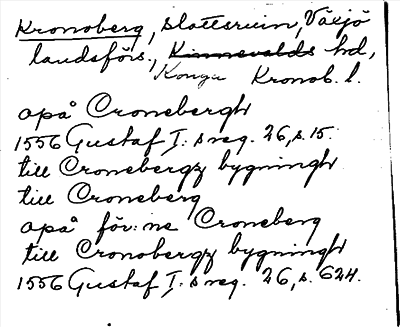 Kronoberg, slottsruin, Växjö
landsförs., Kinnevalds hd,
Konga Kronob. l.
apå Cronebergh
1556 Gustaf I:s reg. 26, s. 15.
till Cronebergz bygningh
till Croneberg
apå för:ne Croneberg
till Cronobergz bygningh
1556 Gustaf I:s reg. 26, s. 624.